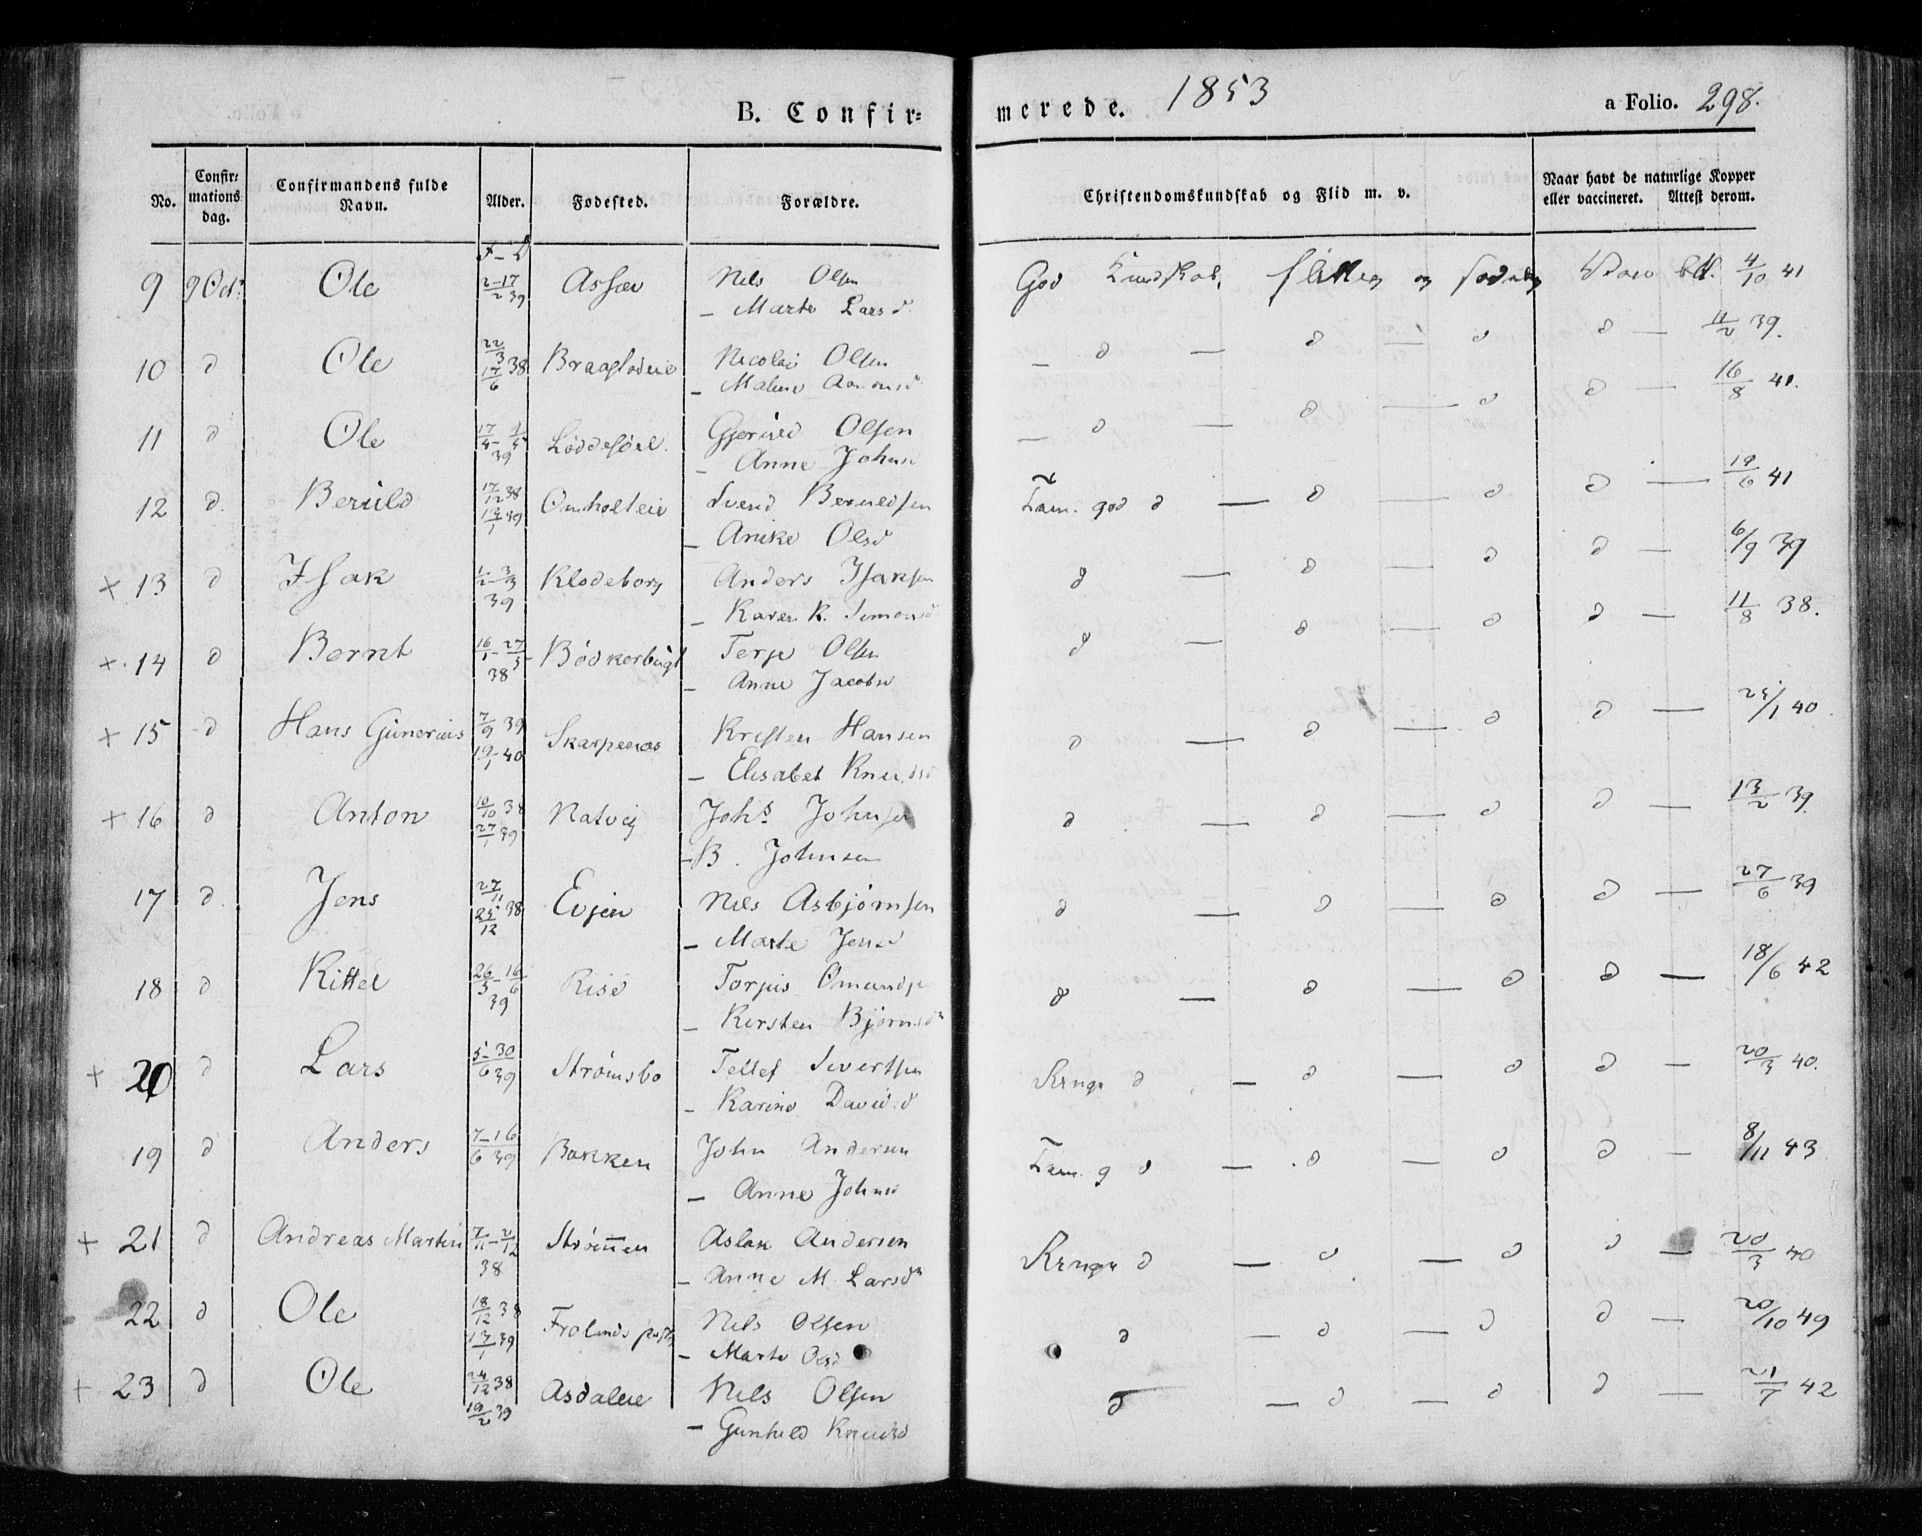 B. Confir=
merede. 1853 a Folio. 298.
No. Confir= mations dag. Confirmandens fulde Navn. Alder. Fødested. Forældre. Christendomskundskab og Flid m. v. Naar havt de naturlige Kopper eller vaccineret. Attest derom.
F - D
9 9 Oct. Ole 2-17/2 39 Assæv Nels Olsen God Kundskab, flittig og sædelig Vacc 4/10 41
- Marte Larsd
10 d Ole 22/3 38 17/6 Nicolai Olsen - d - d - d d - 11/2 39.
- Malene
11 d Ole 17/4 - 1/5 39 Løddesøel. Gjeruld Olsen - d - d - d d - 16/8 41.
- Anne Johnsd
12 d. Beruld 17/12 38 13/1 39 Omholteie Svend Beruldsen Tem. god d - d - d d - 19/6 41
- Anike Olsd
+ 13 d Isak 1/2 - 3/3 39 Klodeborg Anders Isaksen d - d - d d - 6/9 39
- Karen K. Simonsd
+ 14 d Bernt 16/1 - 27/5 38 Bødkerbugt Terje Olsen d - d - d d - 11/8 38.
- Anne Jacobsd
+ 15 d Hans Gunerius 7/9 39 19/1 40 Skarpenæs Kristen Hansen d - d - d d - 25/1 40
- Elisabet Knudsd
+ 16 d Anton 10/10 38 27/1 39 Natvig Johs Johnsen d - d - d d - 13/2 39.
- B. Johnsen
17 d. Jens 27/11 25/12 38 Evjen Nils Asbjørnsen d - d - d d - 27/6 39
- Marte Jensd
18 d Kittel 26/5 - 16/6 39 Rise Torjus Omundsen d - d - d d - 18/6 42
- Kirsten Bjørnsd
+ 20 d Lars 5-30/6 39 Strømsbo Tellef Sivertsen d - d - d d - 20/3 40.
- Karine Davidsd
19 d Anders 7-16/6 39 Bakken John Andersen Tem. g d - d - d d - 8/11 43
- Anne Johnsd
+ 21 d Andreas Martin 7/11 - 2/12 38 Strømmen Aslak Andersen d - d - d d - 20/3 40
- Anne M. Larsd
22 d Ole 18/12 38 13/1 39 Frolands Nils Olsen d - d - d d - 20/10 49
- Marte Olsd
+ 23 d Ole 24/12 38 19/2 39 Asdaleie Nils Olsen d - d - d d - 21/7 42
- Gunhild Knudsd